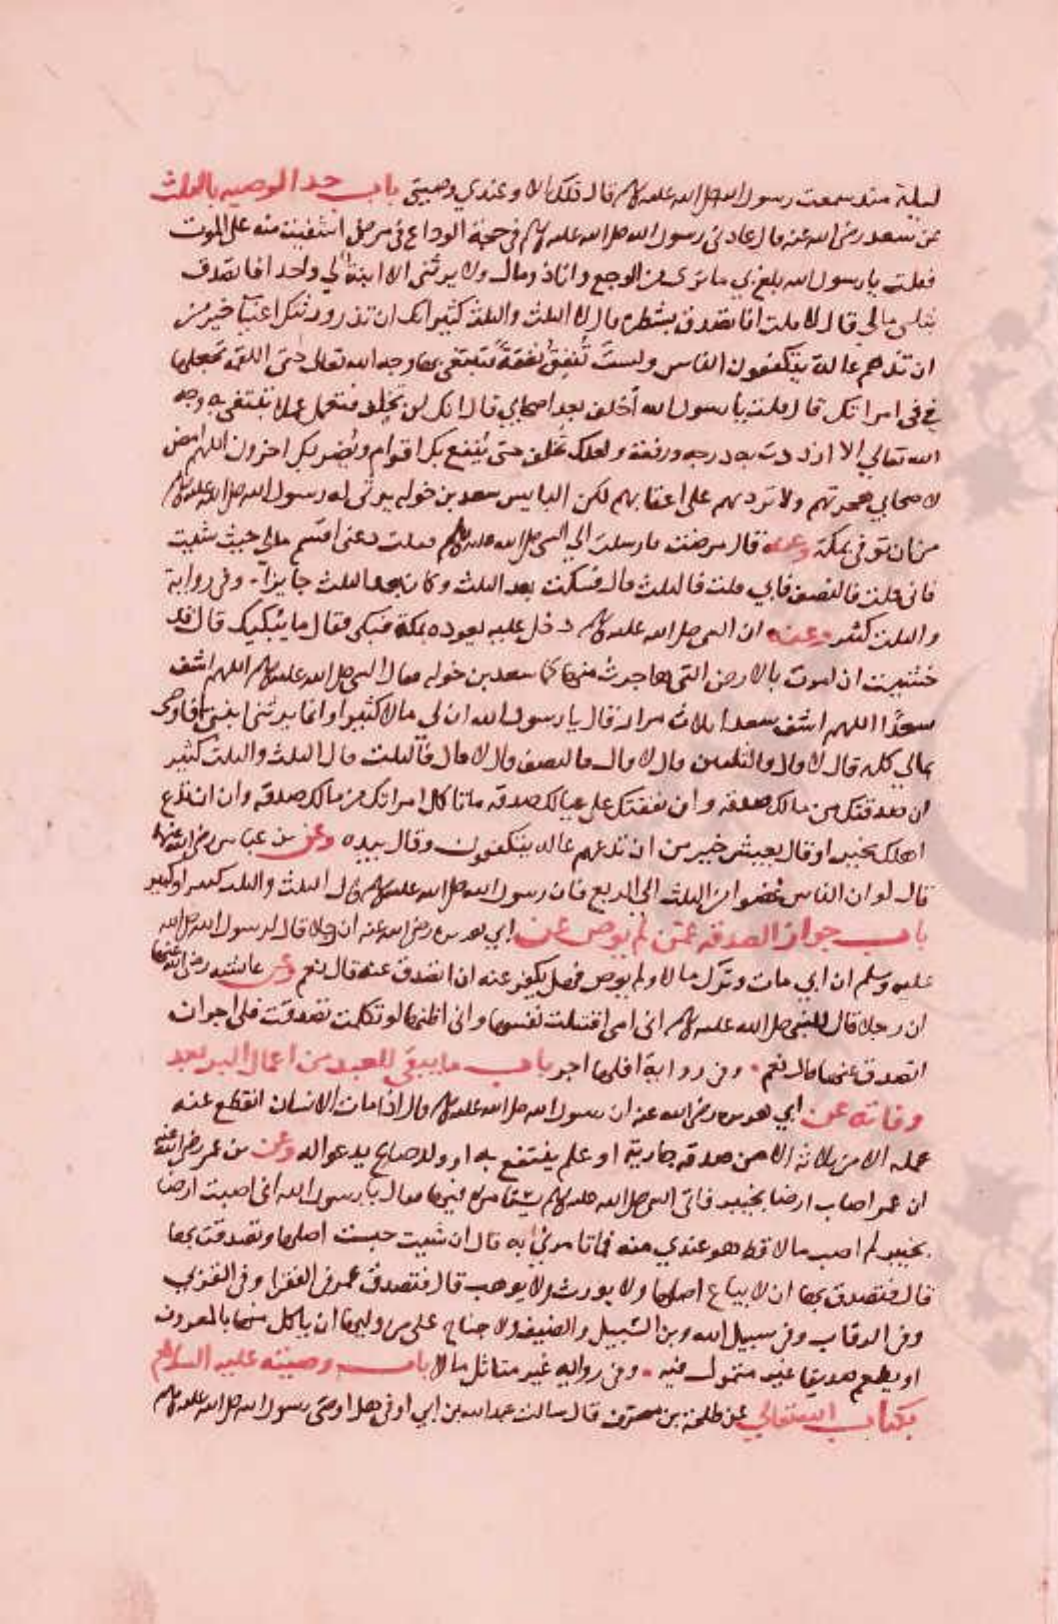 ليلة منذ سمعت رسول الله صلى الله عليه وسلم قال ذلك الا وعندي وصيتي باب حد الوصيه بالثلث
عن سعد رضى الله عنه قال عادنى رسول الله صلى الله عليه وسلم فى حجة الوداع فى مرض اشفيت منه على الموت
فقلت يا رسول الله بلغ بي ما ترى من الوجع وانا ذو مال ولا يرثنى الا ابنة لي واحد افاتصدق
بثلثى مالي قال لا قلت افاتصدق بشطره قال لا الثلث والثلث كثير انك ان تذر ورثتك اغنيا خير من
ان تذرهم عالة يتكففون الناس ولست تُنفِق نفقةً تبتغى بها وجه الله تعالى حتى اللقمة تجعلها
في فى امراتك قال قلت يا رسول الله أخلف بعد اصحابي قال انك لن تخلف فتعمل عملا تبتغى به وجه
الله تعالي الا ازددت به درجه ورفعة ولعلك تخلف حتى ينفع بك اقوام ويضر بك اخرون اللهم امض
لاصحابي هجرتهم ولا تردهم على اعقابهم لكن البايس سعد بن خوله يرثى له رسول الله صلى الله عليه وسلم
من ان توفى بمكة وعنه قال مرضت فارسلت الي النبي صلى الله عليه وسلم فقلت دعنى اقسم مالي حيث شيت
فابى قلت فالنصف فابي قلت فالثلث قال فسكت بعد الثلث وكان بعد الثلث جايزا وفى رواية
والثلث كثير وعنه ان النبى صلى الله عليه وسلم دخل عليه يعوده بمكة فبكى فقال ما يبكيك قال قد
خشيت ان اموت بالارض التى هاجرت منها كما سعد بن خوله فقال النبى صلى الله عليه وسلم اللهم اشف
سعدًا اللهم اشف سعدا ثلاث مرار قال يا رسول الله ان لي مالا كثيرا وانما يرثنى ابنتى افاوصى
بمالي كله قال لا قال فالثلثين قال لا قال فالنصف قال لا قال فالثلث قال الثلث والثلث كثير
ان صدقتك من مالك صدقه وان نفقتك على عيالك صدقه ما تاكل امراتك من مالك صدقه وان ان تدع
اهلك بخير او قال بعيش خير من ان تدعهم عاله يتكففون وقال بيده وعن بن عباس رضى الله عنهما
قال لو ان الناس غضوا من الثلث الي الربع فان رسول الله صلى الله عليه وسلم قال الثلث والثلث كثير او كبير
باب جواز الصدقه عمن لم يوص عن ابي هريره رضى الله عنه ان رجلا قال لرسول الله صلى الله
عليه وسلم ان ابي مات وترك مالا ولم يوص فهل يكفر عنه ان اتصدق عنه قال نعم وعن عايشه رضى الله عنها
ان رجلا قال للنبى صلى الله عليه وسلم انى امى افتلتت نفسها وانى اظنها لو تكلمت تصدقت فلى اجر ان
اتصدق عنها قال نعم وفى رواية افلها اجر باب ما يبقى للعبد من اعمال البر بعد
وفاته عن ابي هريره رضى الله عنه ان رسول الله صلى الله عليه وسلم قال اذا مات الانسان انقطع عنه
عمله الا من ثلاثة الا من صدقه جارية او علم ينتفع به او ولد صالح يدعو اله وعن بن عمر رضى الله عنه
ان عمر اصاب ارضا بخيبر فاتى النبى صلى الله عليه وسلم يستامره فيها فقال يا رسول الله انى اصبت ارضا
بخيبر لم اصب مالا قط هو عندي منه فما تامرنى به قال ان شيت حبست اصلها وتصدقت بها
قال فتصدق بها ان لا يباع اصلها ولا يورث ولا يوهب قال فتصدق عمر فى الفقرا وفى القربي
وفى الرقاب وفى سبيل الله وبن السبيل والضيف ولا جناح على من وليها ان ياكل منها بالمعروف
او يطعم صديقا غير متمول فيه وفى روايه غير متاثل مالا باب وصيته عليه السلام
بكتاب الله تعالي عن طلحة بن مصرف قال سالت عبد الله بن ابي اوفى هل اوصى رسول الله صلى الله عليه وسلم